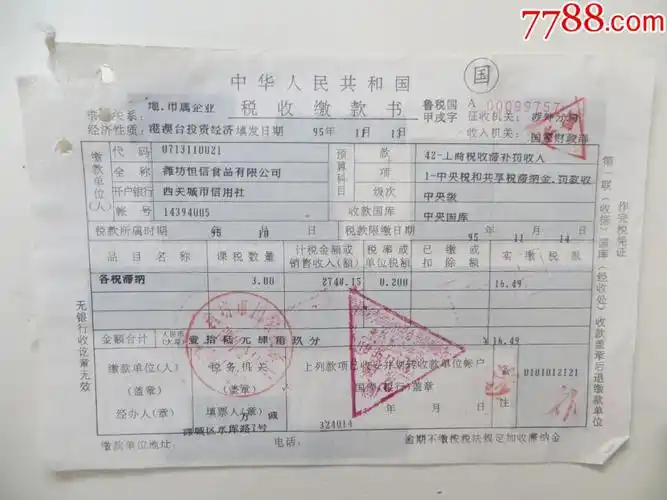 7788.com
中华人民共和国
国
税收缴款书
鲁税国 A 0009975
甲戌字
隶属关系:
地.市属企业
经济性质: 港澳台投资经济 填发日期 95年 1月 1日
征收机关:
收入机关: 国家财政部
缴款单位(人)
代码 0713110021
全称 潍坊恒信食品有限公司
开户银行 西关城市信用社
帐号 14394005
预算科目
款 42-工商税收滞补罚收入
项 1-中央税和共享税滞纳金、罚款收
级次 中央级
收款国库 中央国库
税款所属时期 95年 10月 日
税款限缴日期 95年 11月 14日
品目名称 课税数量 计税金额或销售收入(额) 税率或单位税额 已缴或扣除额 实缴税额
各税滞纳 3.00 2740.15 0.200 16.49
金额合计 人民币(大写) 壹拾陆元肆角玖分 ¥16.49
缴款单位(人)
(盖章)
经办人(章)
税务机关
(盖章)
填票人(章)
上列款项已收妥并划转收款单位帐户
国库(银行)盖章
年 月 日
备注
0101012121
324014
缴款单位地址:
潍城区水库路7号
电话:
逾期不缴按税法规定加收滞纳金
无银行收讫章无效
第一联(收据)国库(经收处)收款盖章后退缴款单位
作完税凭证